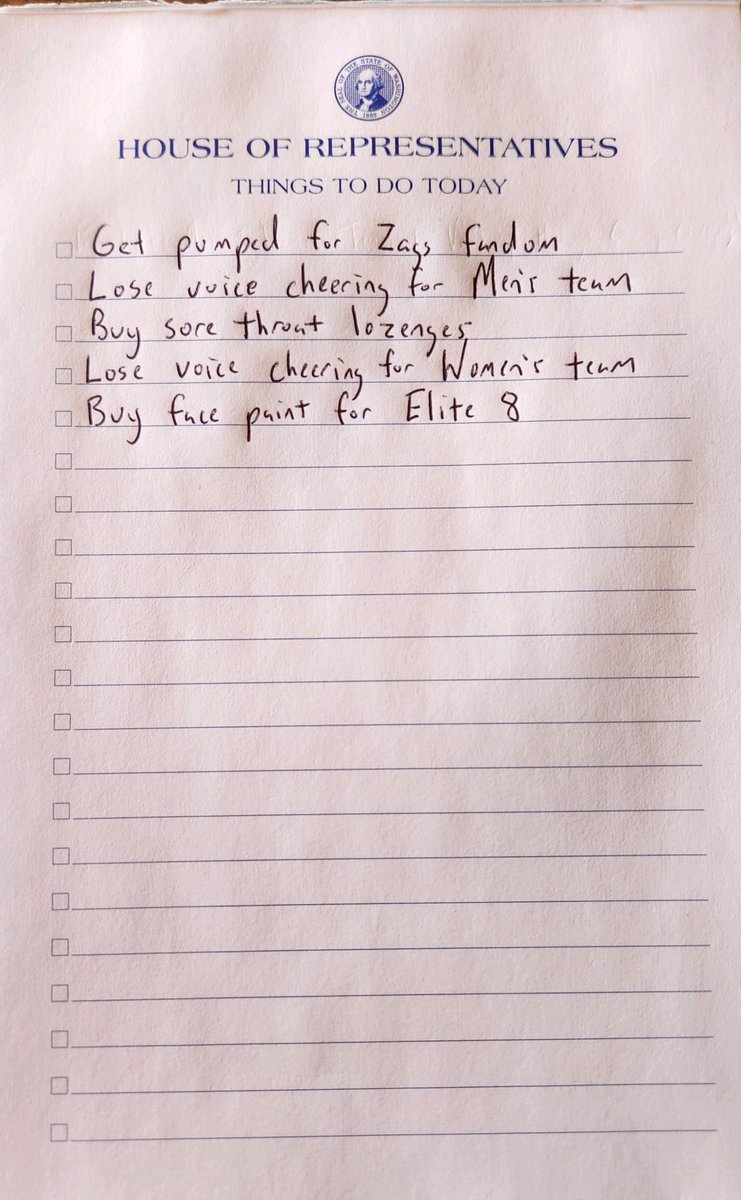 THE SEAL OF THE STATE OF WASHINGTON
1889
HOUSE OF REPRESENTATIVES
THINGS TO DO TODAY
Get pumped for Zags fandom
Lose voice cheering for Men's team
Buy sore throat lozenges
Lose voice cheering for Women's team
Buy face paint for Elite 8